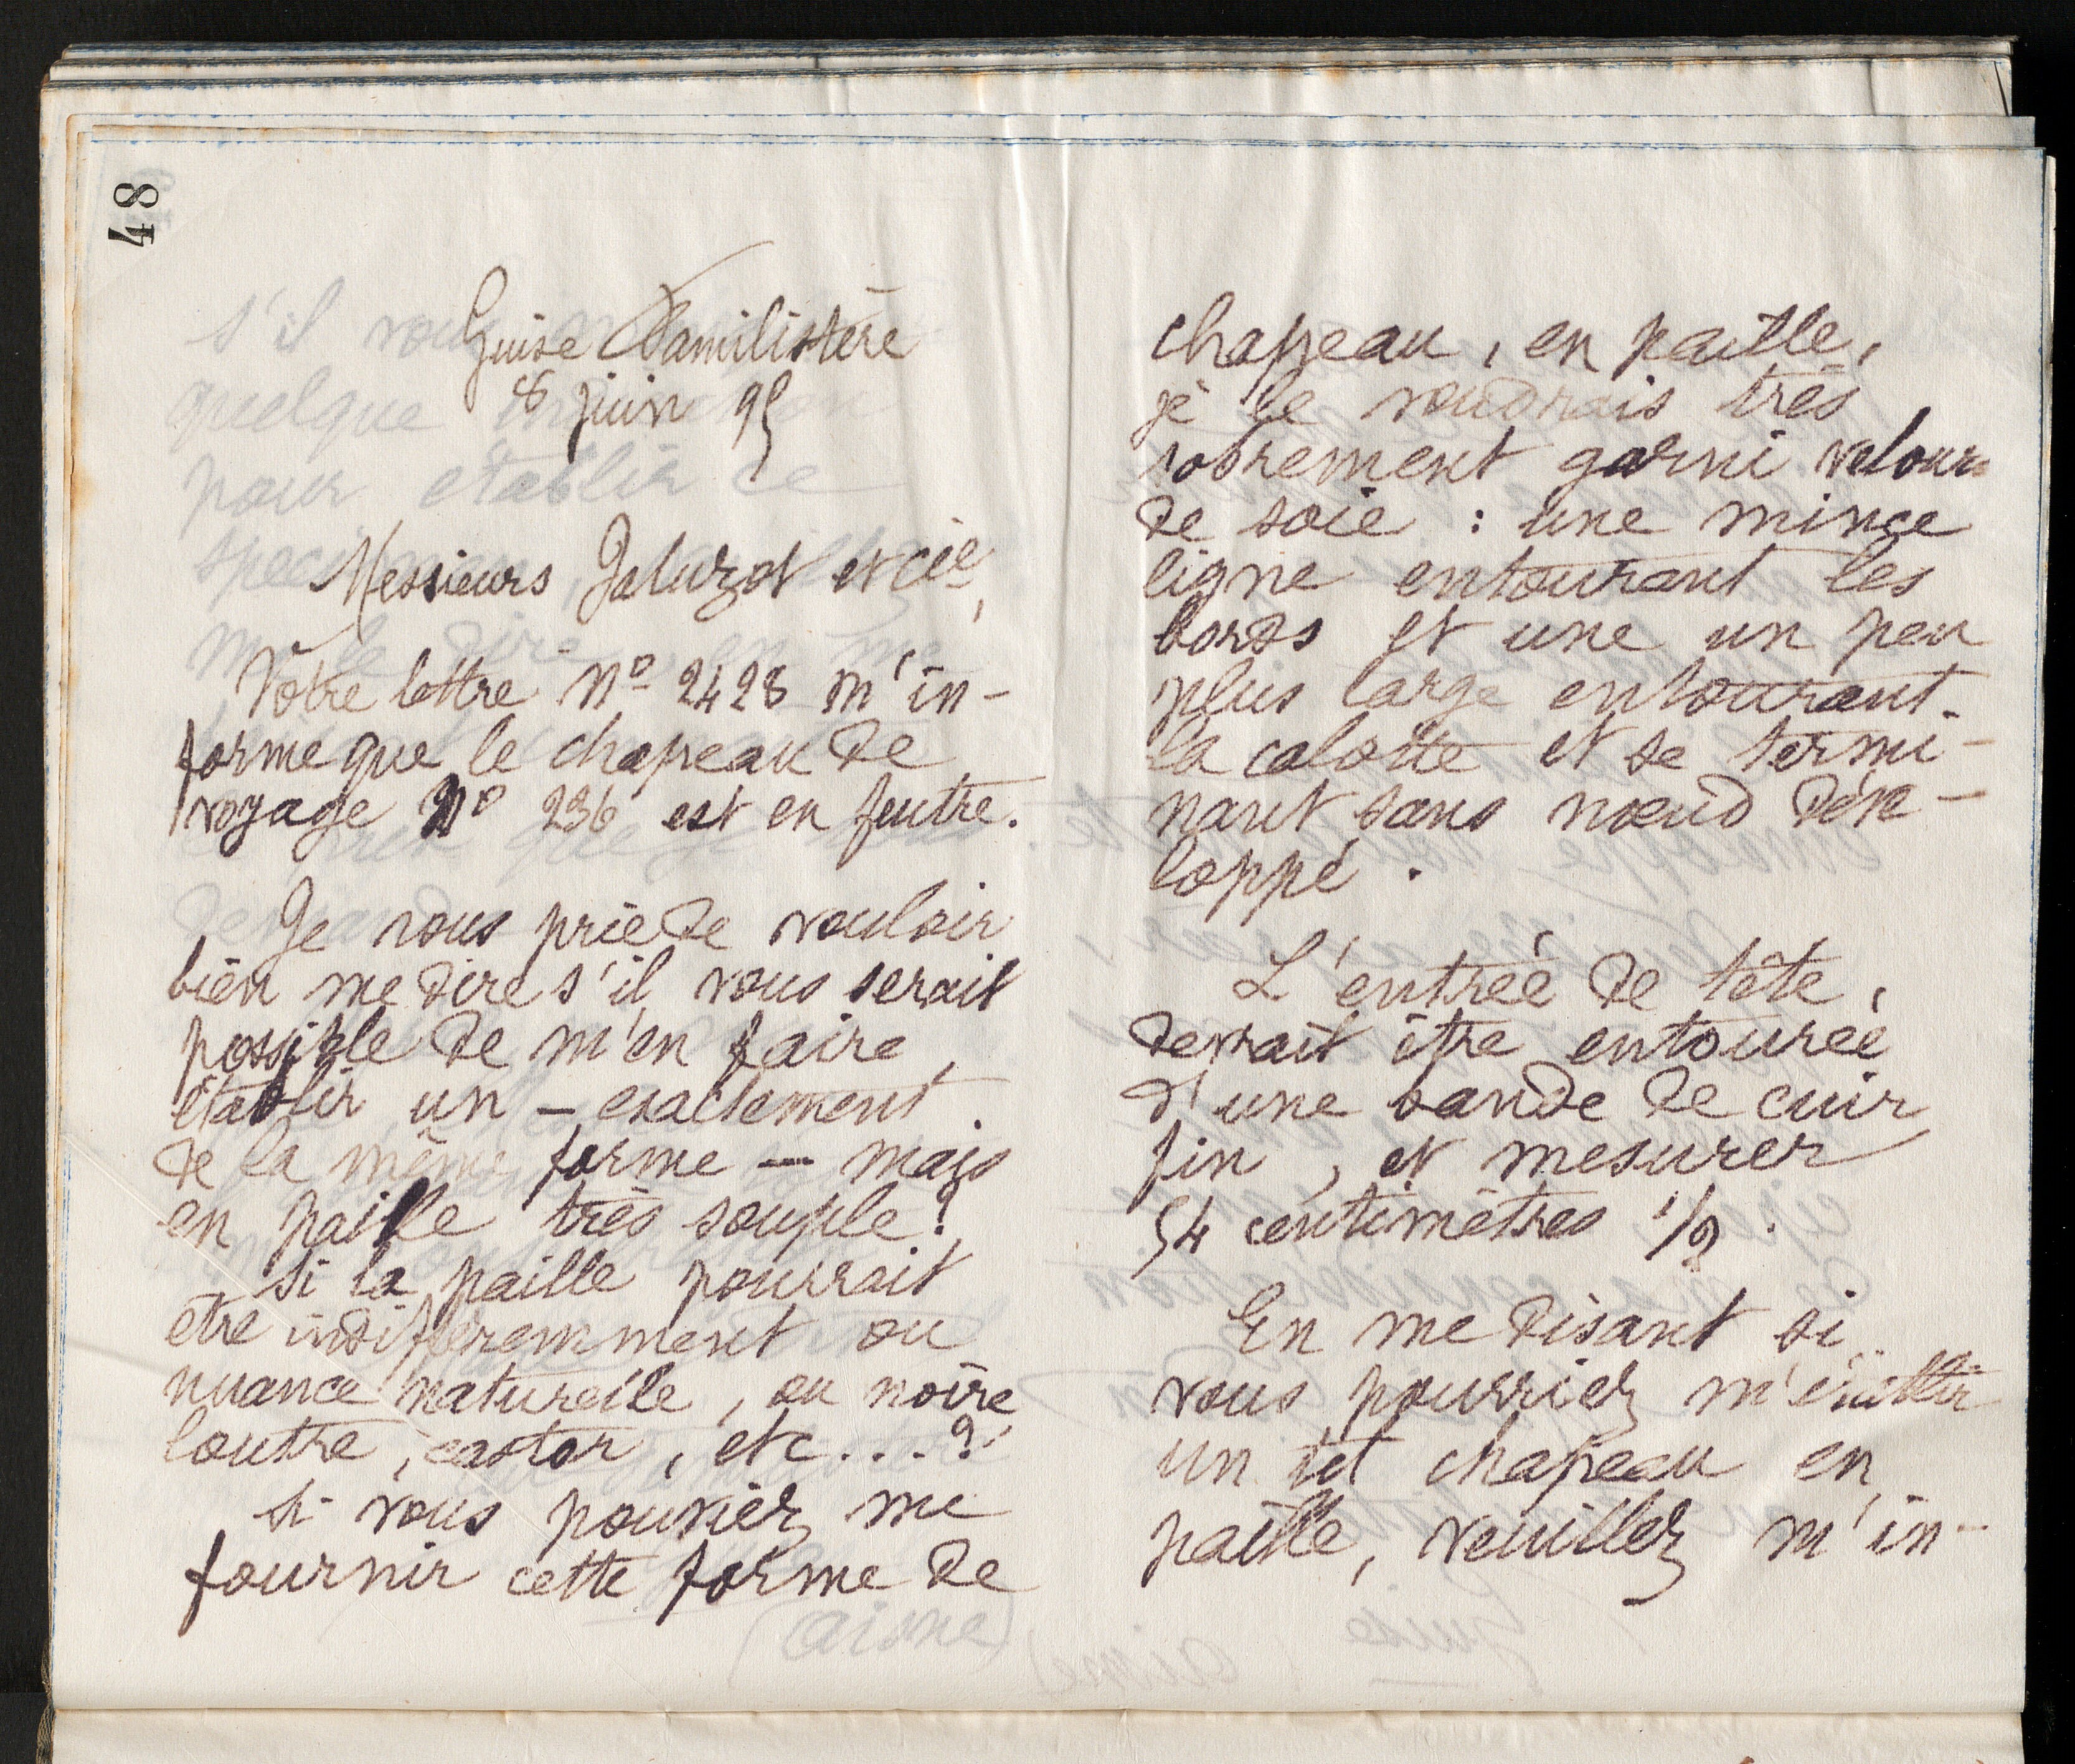 48
Guise Familistère
8 juin 95
Messieurs Jaluzot et Cie,
Votre lettre No 2428 m'in-
forme que le chapeau de
voyage No 236 est en feutre.
Je vous prie de vouloir
bien me dire s'il vous serait
possible de m'en faire
établir un - exactement
de la même forme - mais
en paille très souple?
Si la paille pourrait
être indifféremment ou
nuance naturelle, ou noire
loutre, castor, etc...?
Si vous pouviez me
fournir cette forme de
chapeau, en paille,
je le voudrais très
sobrement garni velours
de soie : une mince
ligne entourant les
bords et une un peu
plus large entourant
la calotte et se termi-
nant sans nœud déve-
loppé.
L'entrée de tête,
devrait être entourée
d'une bande de cuir
fin, et mesurer
54 centimètres 1/2.
En me disant si
vous pourriez m'établir
un tel chapeau en
paille, veuillez m'in-